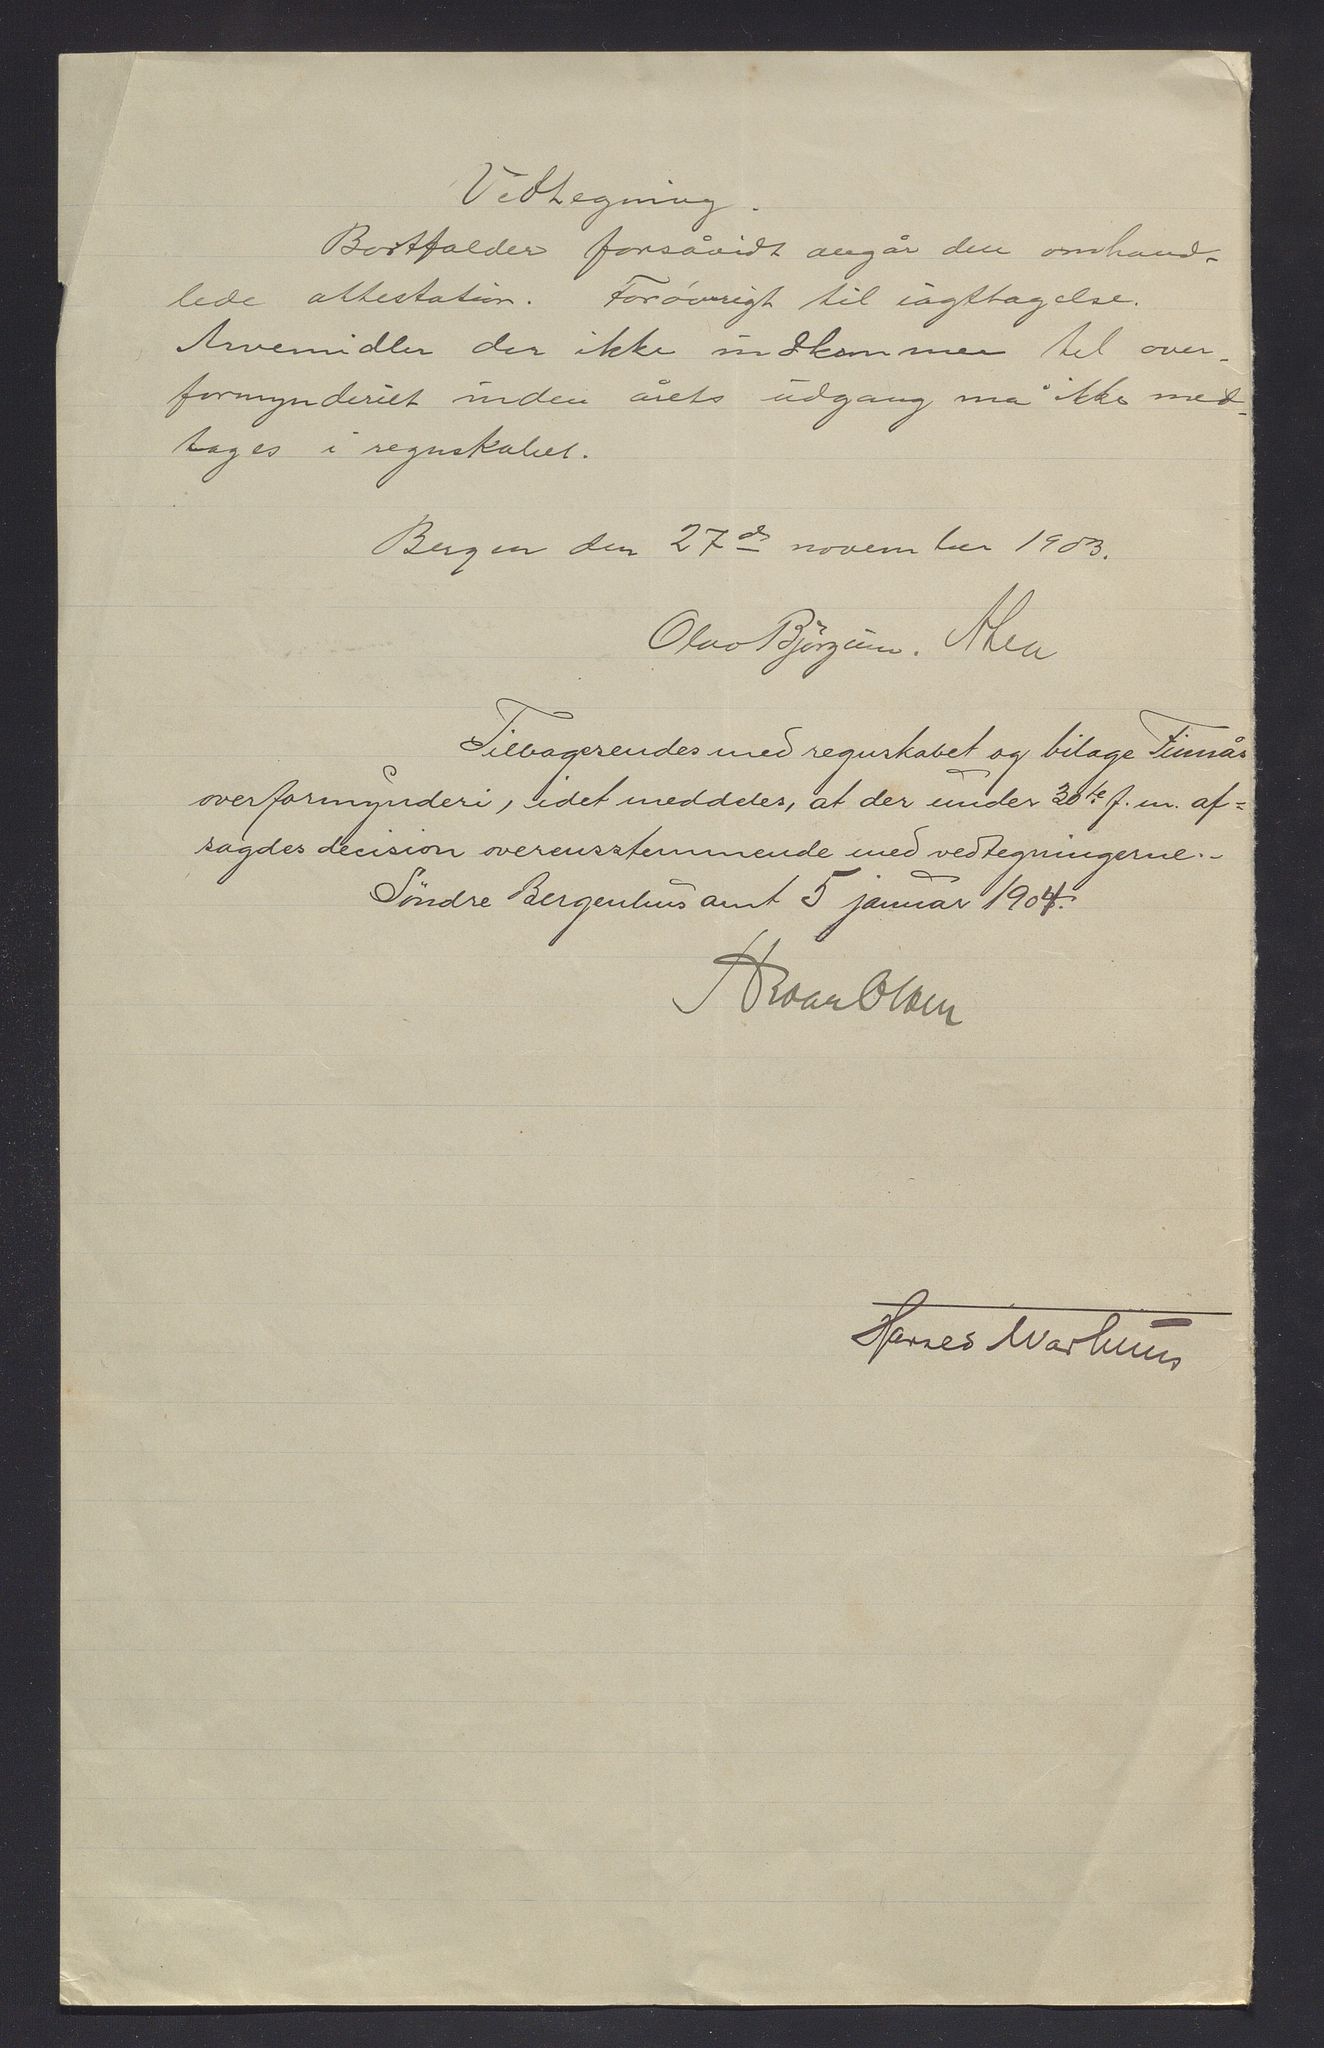 Vedtegning.
Bortfalder forsåvidt angår den omhand-
lede attestation. Forøvrigt til iagttagelse.
Arvemidler der ikke indkommer til over-
formynderiet inden årets udgang må ikke med-
tages i regnskabet.
Bergen den 27de november 1903.
Olav Bjórgum.
Tilbagesendes med regnskabet og bilage Finnås
overformynderi, idet meddeles, at der under 30te f. m. af-
sagdes decision overensstemmende med vedtegningerne.-
Söndre Bergenhus amt 5 januar 1904.
Roar Olsen